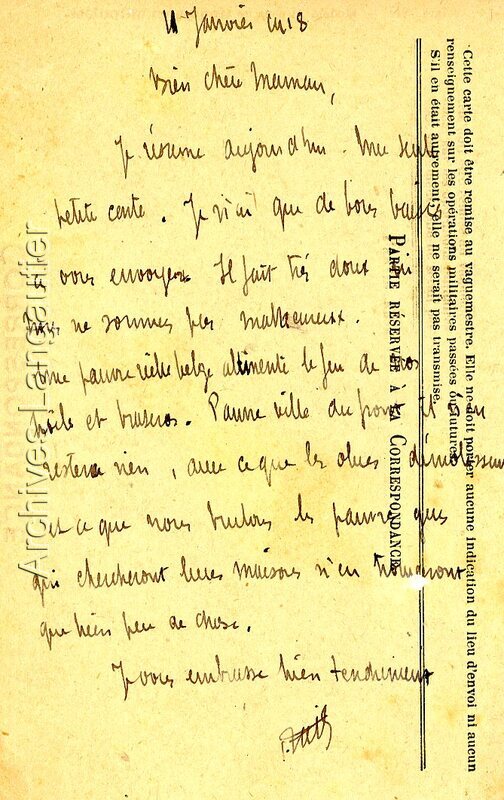 11 Janvier 1918
Bien chère Maman,
Je résume aujourd'hui. Une seule
petite carte. Je n'ai que de bons baisers
vous envoyer. Il fait très doux ici
nous ne sommes pas malheureux.
Une pauvre ville belge alimente le feu de nos
poêle et braseros. Pauvre ville du front il n'en
restera rien, avec ce que les obus démolissent
et ce que nous brulons les pauvres gens
qui chercheront leurs maisons n'en trouveront
que bien peu de chose.
Je vous embrasse bien tendrement
Cette carte doit être remise au vaguemestre. Elle ne doit porter aucune indication du lieu d'envoi ni aucun
renseignement sur les opérations militaires passées ou futures.
S'il en était autrement, elle ne serait pas transmise.
PARTIE RÉSERVÉE A LA CORRESPONDANCE